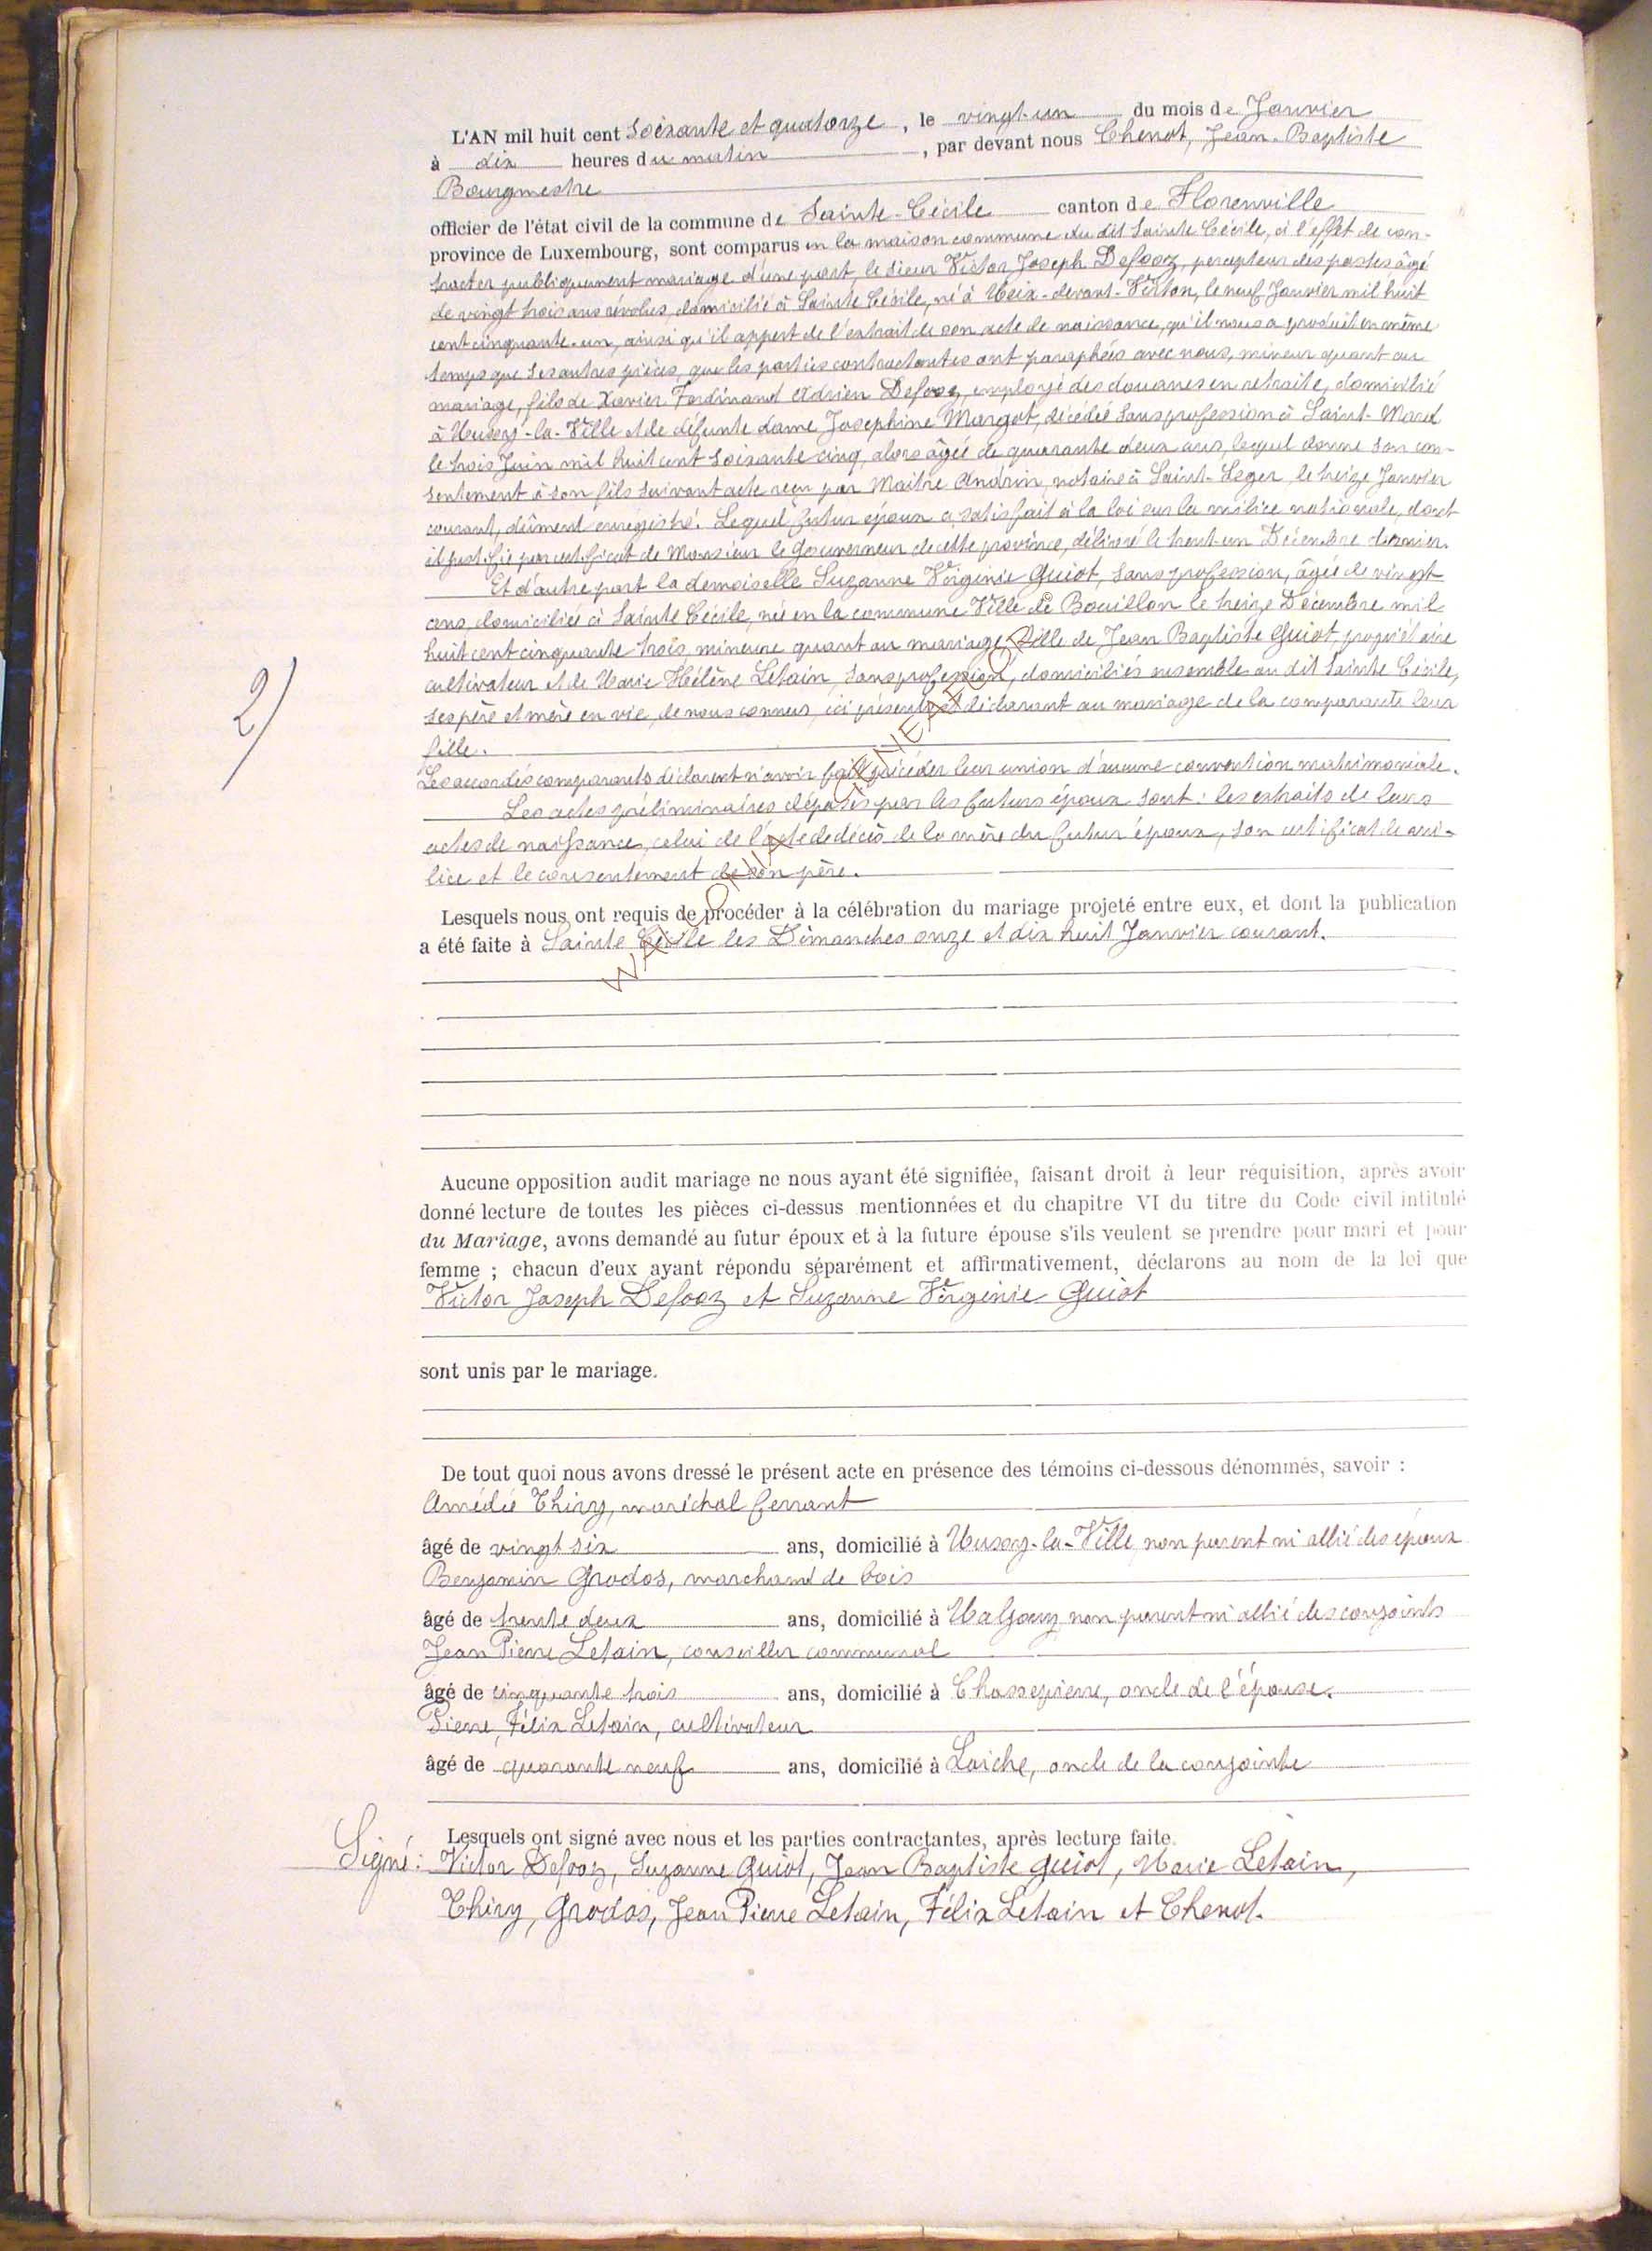 L'AN mil huit cent Soixante et quatorze, le vingt-un du mois de Janvier
à dix heures du matin, par devant nous Chenot, Jean-Baptiste
Bourgmestre
officier de l'état civil de la commune de Sainte-Cécile canton de Florenville
province de Luxembourg, sont comparus en la maison commune du dit Sainte Cécile, à l'effet de con-
tracter publiquement mariage d'une part, le sieur Victor Joseph Defooz, percepteur des postes âgé
de vingt trois ans révolus, domicilié à Sainte Cécile, né à Meix-devant-Virton, le neuf Janvier mil huit
cent cinquante-un, ainsi qu'il appert de l'extrait de son acte de naissance, qu'il nous a produit en même
temps que ses autres pièces, que les parties contractantes ont paraphées avec nous, mineur quant au
mariage, fils de Xavier Ferdinand Adrien Defooz, employé des douanes en retraite, domicilié
à Mussy-la-Ville et de défunte dame Josephine Margot, décédée sans profession à Saint-Mard
le trois Juin mil huit cent soixante cinq, alors âgée de quarante deux ans, lequel donne son con-
sentement à son fils suivant acte reçu par Maître Andrin, notaire à Saint-Leger, le treize Janvier
courant, dûment enregistré. Lequel futur époux a satisfait à la loi sur la milice nationale, dont
il justifie par certificat de Monsieur le Gouverneur de cette province, délivré le trent-un Décembre dernier.
Et d'autre part la demoiselle Suzanne Virginie Guiot, sans profession, âgée de vingt
ans, domiciliée à Sainte Cécile, née en la commune Ville de Bouillon le treize Décembre mil
huit cent cinquante trois, mineure quant au mariage, fille de Jean Baptiste Guiot, propriétaire
cultivateur et de Marie Hélène Letain, sans profession, domiciliés ensemble au dit Sainte Cécile,
ses père et mère en vie, de nous connus, ici présents et déclarant au mariage de la comparante leur
fille.
2)
Les accordés comparants déclarent n'avoir fait précéder leur union d'aucune convention matrimoniale.
Les actes préliminaires déposés par les futurs époux sont : les extraits de leurs
actes de naissance, celui de l'acte de décès de la mère du futur époux, son certificat de mi-
lice et le consentement de son père.
WALLONIA GENEAFGO
Lesquels nous ont requis de procéder à la célébration du mariage projeté entre eux, et dont la publication
a été faite à Sainte Cécile les Dimanches onze et dix huit Janvier courant.
Aucune opposition audit mariage ne nous ayant été signifiée, faisant droit à leur réquisition, après avoir
donné lecture de toutes les pièces ci-dessus mentionnées et du chapitre VI du titre du Code civil intitulé
du Mariage, avons demandé au futur époux et à la future épouse s'ils veulent se prendre pour mari et pour
femme ; chacun d'eux ayant répondu séparément et affirmativement, déclarons au nom de la loi que
Victor Joseph Defooz et Suzanne Virginie Guiot
sont unis par le mariage.
De tout quoi nous avons dressé le présent acte en présence des témoins ci-dessous dénommés, savoir :
Amédée Thiry, maréchal ferrant
âgé de vingt six ans, domicilié à Mussy-la-Ville, non parent ni allié des époux
Benjamin Grodos, marchand de bois
âgé de trente deux ans, domicilié à non parent ni allié des conjoints
Jean Pierre Letain, conseiller communal
âgé de cinquante trois ans, domicilié à Chassepierre, oncle de l'épouse.
Pierre, Félix Letain, cultivateur
âgé de quarante neuf ans, domicilié à Laiche, oncle de la conjointe
Lesquels ont signé avec nous et les parties contractantes, après lecture faite.
Signé : Victor Defooz, Suzanne Guiot, Jean Baptiste Guiot, Marie Letain,
Thiry, Grodos, Jean Pierre Letain, Félix Letain et Chenot.